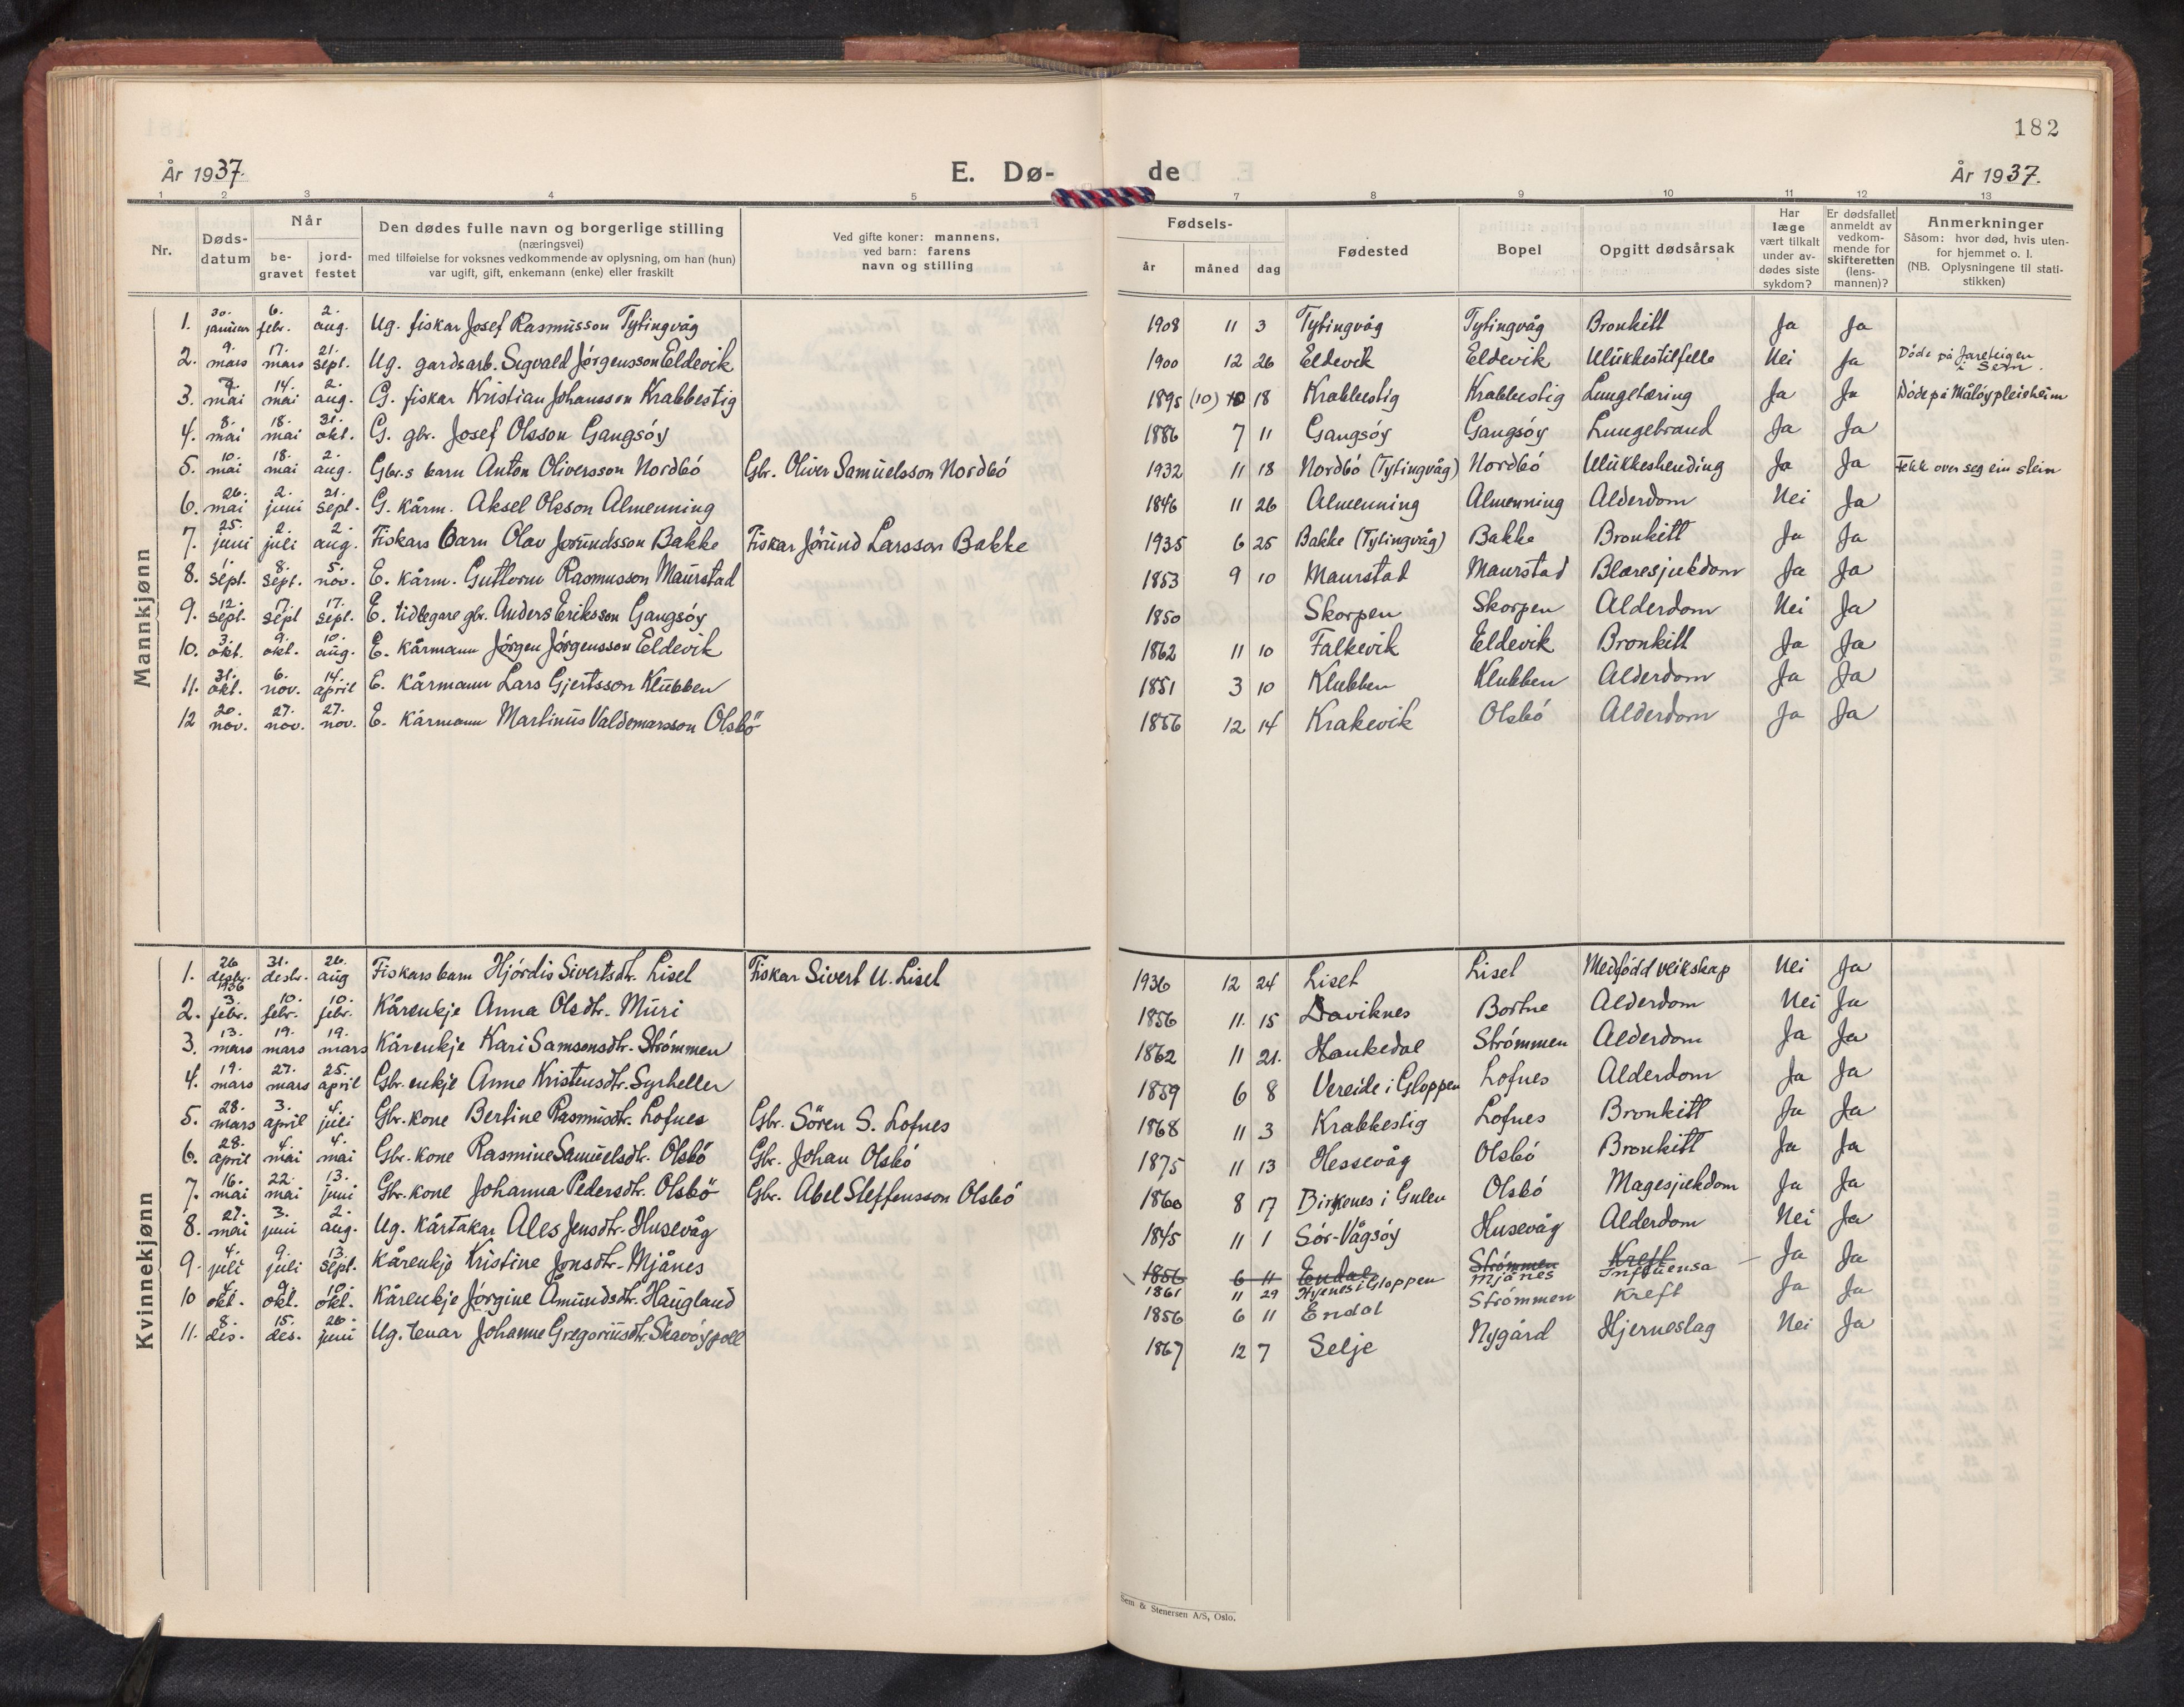 182
År 1937.
E. Dø-
de
År 1937.
1 2 3 4 5 7 8 9 10 11 12 13
Nr.
Døds-
datum
Når
be-
gravet
jord-
festet
Den dødes fulle navn og borgerlige stilling
(næringsvei)
med tilføielse for voksnes vedkommende av oplysning, om han (hun)
var ugift, gift, enkemann (enke) eller fraskilt
Ved gifte koner: mannens,
ved barn: farens
navn og stilling
Fødsels-
år måned dag
Fødested
Bopel
Opgitt dødsårsak
Har
læge
vært tilkalt
under av-
dødes siste
sykdom?
Er dødsfallet
anmeldt av
vedkom-
mende for
skifteretten
(lens-
mannen)?
Anmerkninger
Såsom: hvor død, hvis uten-
for hjemmet o. l.
(NB. Oplysningene til stati-
stikken)
Mannkjønn
1. 30. januar 6. febr. 2. aug. Ug. fiskar Josef Rasmusson Tytingvåg 1908 11 3 Tytingvåg Tytingvåg Bronkitt Ja Ja
2. 9. mars 17. mars 21. sept. Ug. gardsarb. Segvald Jørgensson Eldevik 1900 12 26 Eldevik Eldevik Ulukkestilfelle Nei Ja Døde på i Sem.
3. mai 14. mai 2. aug. G. fiskar Kristian Johansson Krabbestig 1895 (10) 10 18 Krabbestig Krabbestig Lungetæring Ja Ja Døde på Måløy pleieheim
4. 8. mai 18. mai 31. okt. G. gbr. Josef Olsson Gangsöy 1886 7 11 Gangsöy Gangsöy Lungebrand Ja Ja
5. 10. mai 18. mai 2. aug. Gbr.s barn Anton Oliversson Nordbó Gbr. Oliver Samuelsson Nordbó 1932 11 18 Nordbó (Tytingvåg) Nordbó Ulukkeshending Ja Ja Fekk over seg ein stein
6. 26. mai 2. juni 21. sept. G. kårm. Aksel Olsson Almenning 1846 11 26 Almenning Almenning Alderdom Nei Ja
7. 25. juni 2. juli 2. aug. Fiskars barn Olav Jorundsson Bakke Fiskar Jørund Larsson Bakke 1935 6 25 Bakke (Tytingvåg) Bakke Bronkitt Ja Ja
8. 1. sept. 8. sept. 5. nov. E. kårm. Guttorm Rasmusson Maurstad 1853 9 10 Maurstad Maurstad Blæresjukdom Ja Ja
9. 12. sept. 17. sept 17. sept. E. tidlegare gbr. Anders Eriksson Gangsöy 1850 Skorpen Skorpen Alderdom Nei Ja
10. 3. okt. 9. okt. 10. aug. E. kårmann Jórgen Jórgensson Eldevik 1862 11 10 Falkevik Eldevik Bronkitt Ja Ja
11. 31. okt. 6. nov. 14. april E. kårmann Lars Gjertsson Klubben 1851 3 10 Klubben Klubben Alderdom Ja Ja
12 20. nov. 27. nov. 27. nov. E. kårmann Martinus Valdemarsson Olsbö 1856 12 14 Krakevik Olsbó Alderdom Ja Ja
Kvinnekjønn
1. 26 desbr. 1936 31. desbr. 26. aug Fiskars barn Hjórdis Sivertsdtr. Liset Fiskar Sivert U. Liset 1936 12 24 Liset Liset Medfødd veikskap Nei Ja
2. 3. febr. 10. febr. 10. febr. Kårenkje Anna Olsdtr. Muri 1856 11. 15 Daviknes Bortne Alderdom Nei Ja
3. 13. mars 19. mars 19. mars Kårenkje Kari Samsonsdtr. Strømmen 1862 11 21. Haukedal Strómmen Alderdom Ja Ja
4. 19. mars 27. mars 25. april Gbr. enkje Anne Kristensdtr. Syrheller 1859 6 8 Vereide i Gloppen Lofnes Alderdom Ja Ja
5. 28. mars 3. april 4. juli Gbr. kone Bertine Rasmusdtr. Lofnes Gbr. Sören S. Lofnes 1868 11 3 Krabbestig Lofnes Bronkitt Ja Ja
6. 28. april 4. mai 4. mai Gbr. kone Rasmine Samuelsdtr. Olsbö Gbr. Johan Olsbó 1875 11 13 Hessevåg Olsbó Bronkitt Ja Ja
7. 16. mai 22. mai 13. juni Gbr. kone Johanna Pedersdtr. Olsbö Gbr. Abel Steffensson Olsbó 1860 8 17 Birkenes i Gulen Olsbó Magesjukdom Ja Ja
8. 27. mai 3. juni 2. aug. Ug. kårtakar Ales Jensdtr. Husevåg 1845 11 1 Sór-Vågsöy Husevåg Alderdom Nei Ja
9. 4. juli 9. juli 13. sept. Kårenkje Kristine Jonsdtr. Mjånes 1856 6 11 Endal Strømmen Kreft Ja Ja
1861 11 29 Hyenes i Gloppen Mjånes Influensa
10 4. okt. 9. okt. 10. okt. Kårenkje Jórgine Åmundsdtr. Haugland 1856 6 11 Endal Strómmen Kreft Ja Ja
11. 8. des. 15. des. 20. juni Ug. tenar Johanne Gregoriusdtr. Skavöypoll 1867 12 7 Selje Nygård Hjerneslag Nei Ja
Sem & Stenersen A/S, Oslo.